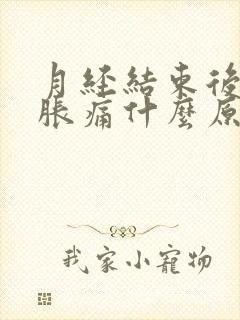 月经結束後
脹痛什麼原
我家小寵物